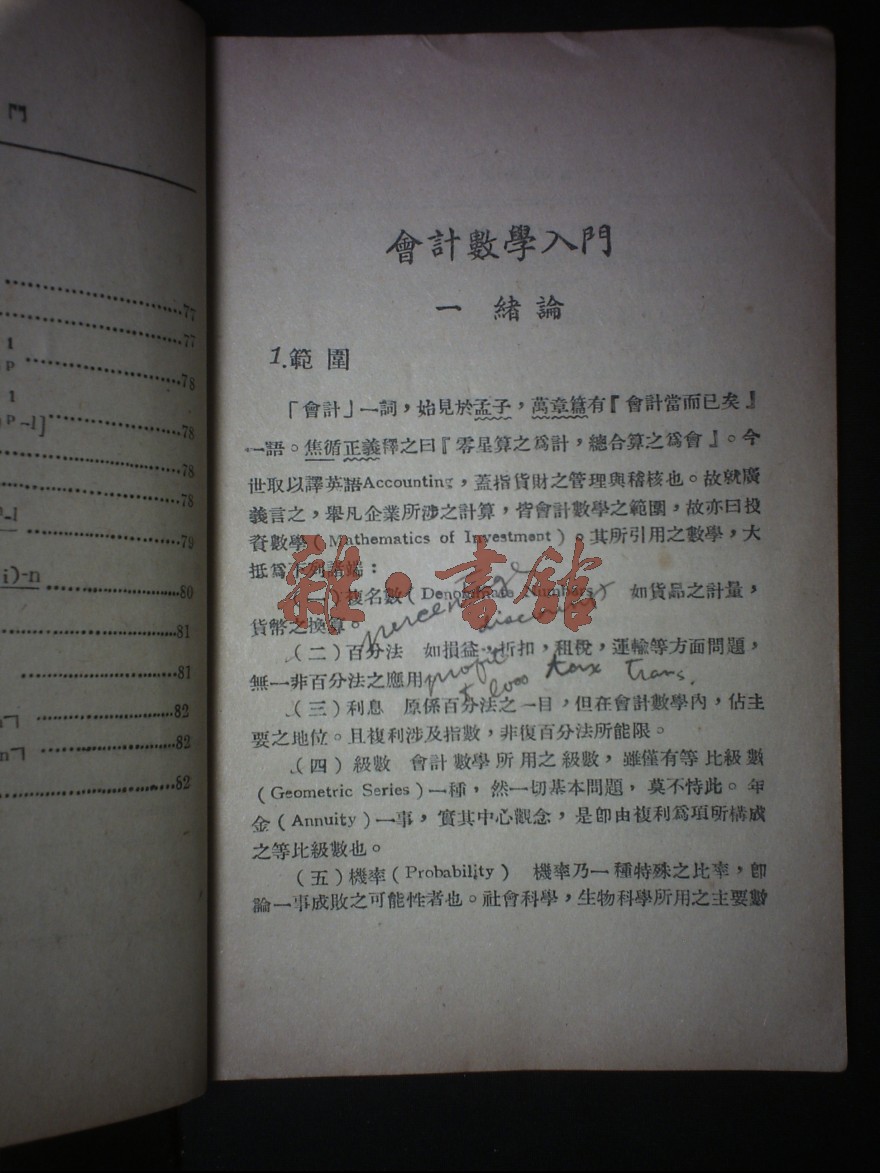 門
77
77
1
P
78
1
P-1]
78
78
78
P-1
79
i)-n
80
81
81
82
82
82
會計數學入門
一 緒論
1.範圍
「會計」一詞,始見於孟子,萬章篇有『會計當而已矣』
一語。焦循正義釋之曰『零星算之爲計,總合算之爲會』。今
世取以譯英語Accounting,蓋指貨財之管理與稽核也。故就廣
義言之,舉凡企業所涉之計算,皆會計數學之範圍,故亦曰投
資數學(Mathematics of Investment)。其所引用之數學,大
抵爲下列諸端:
(一)複名數(Denominate Numbers) 如貨品之計量,
貨幣之換算。
percentage
discount
(二)百分法 如損益,折扣,租稅,運輸等方面問題,
無一非百分法之應用
profit
+ loss tax trans.
(三)利息 原係百分法之一目,但在會計數學內,佔主
要之地位。且複利涉及指數,非復百分法所能限。
(四)級數 會計數學所用之級數,雖僅有等比級數
(Geometric Series)一種,然一切基本問題,莫不恃此。年
金(Annuity)一事,實其中心觀念,是卽由複利爲項所構成
之等比級數也。
(五)機率(Probability) 機率乃一種特殊之比率,卽
論一事成敗之可能性者也。社會科學,生物科學所用之主要數
雜·書館